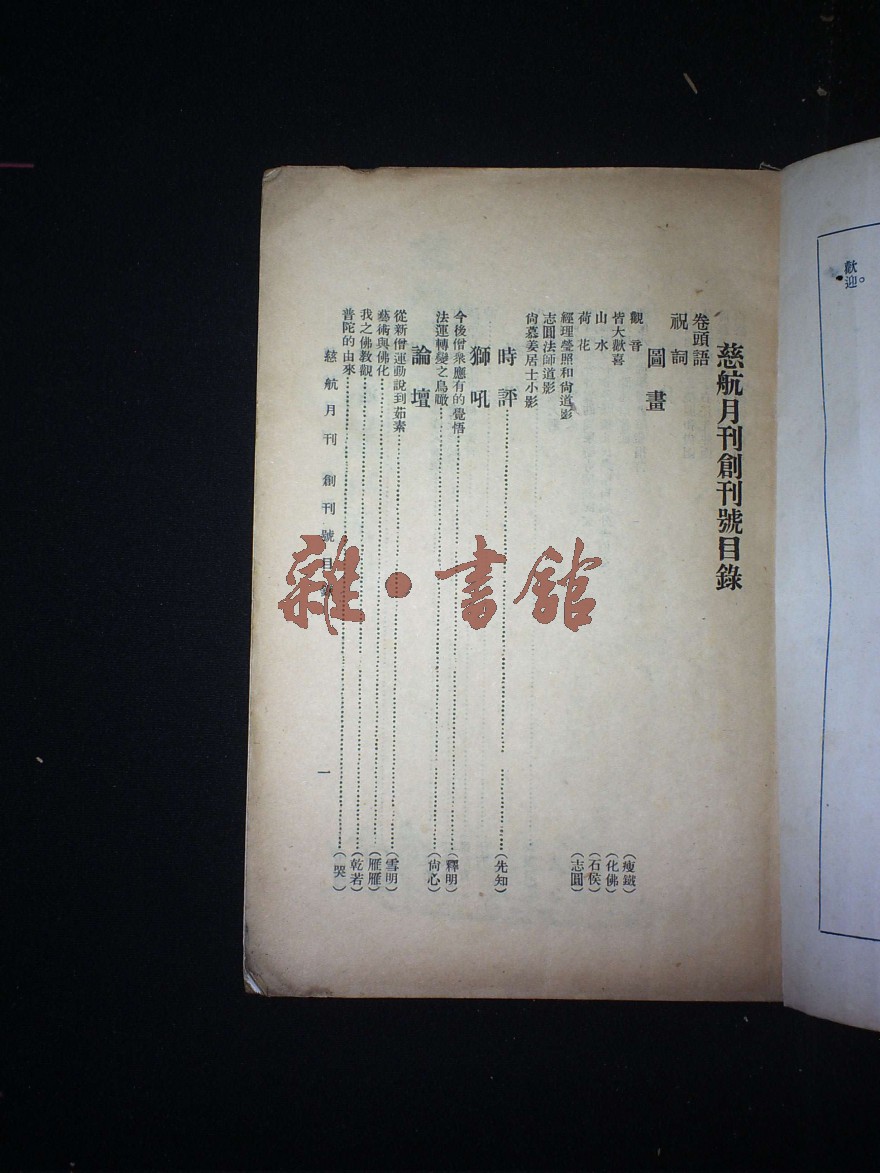 歡迎。
慈航月刊創刊號目錄
卷頭語
祝詞
圖畫
觀音(瘦鐵)
皆大歡喜(化佛)
山水(石侯)
荷花(志圓)
經理瑩照和尙道影
志圓法師道影
尙慕姜居士小影
時評(先知)
獅吼
今後僧衆應有的覺悟(釋明)
法運轉變之鳥瞰(尙心)
論壇
從新僧運動說到茹素(雪明)
藝術與佛化(雁雁)
我之佛教觀(乾若)
普陀的由來(哭)
慈航月刊 創刊號目錄 一
雜·書館